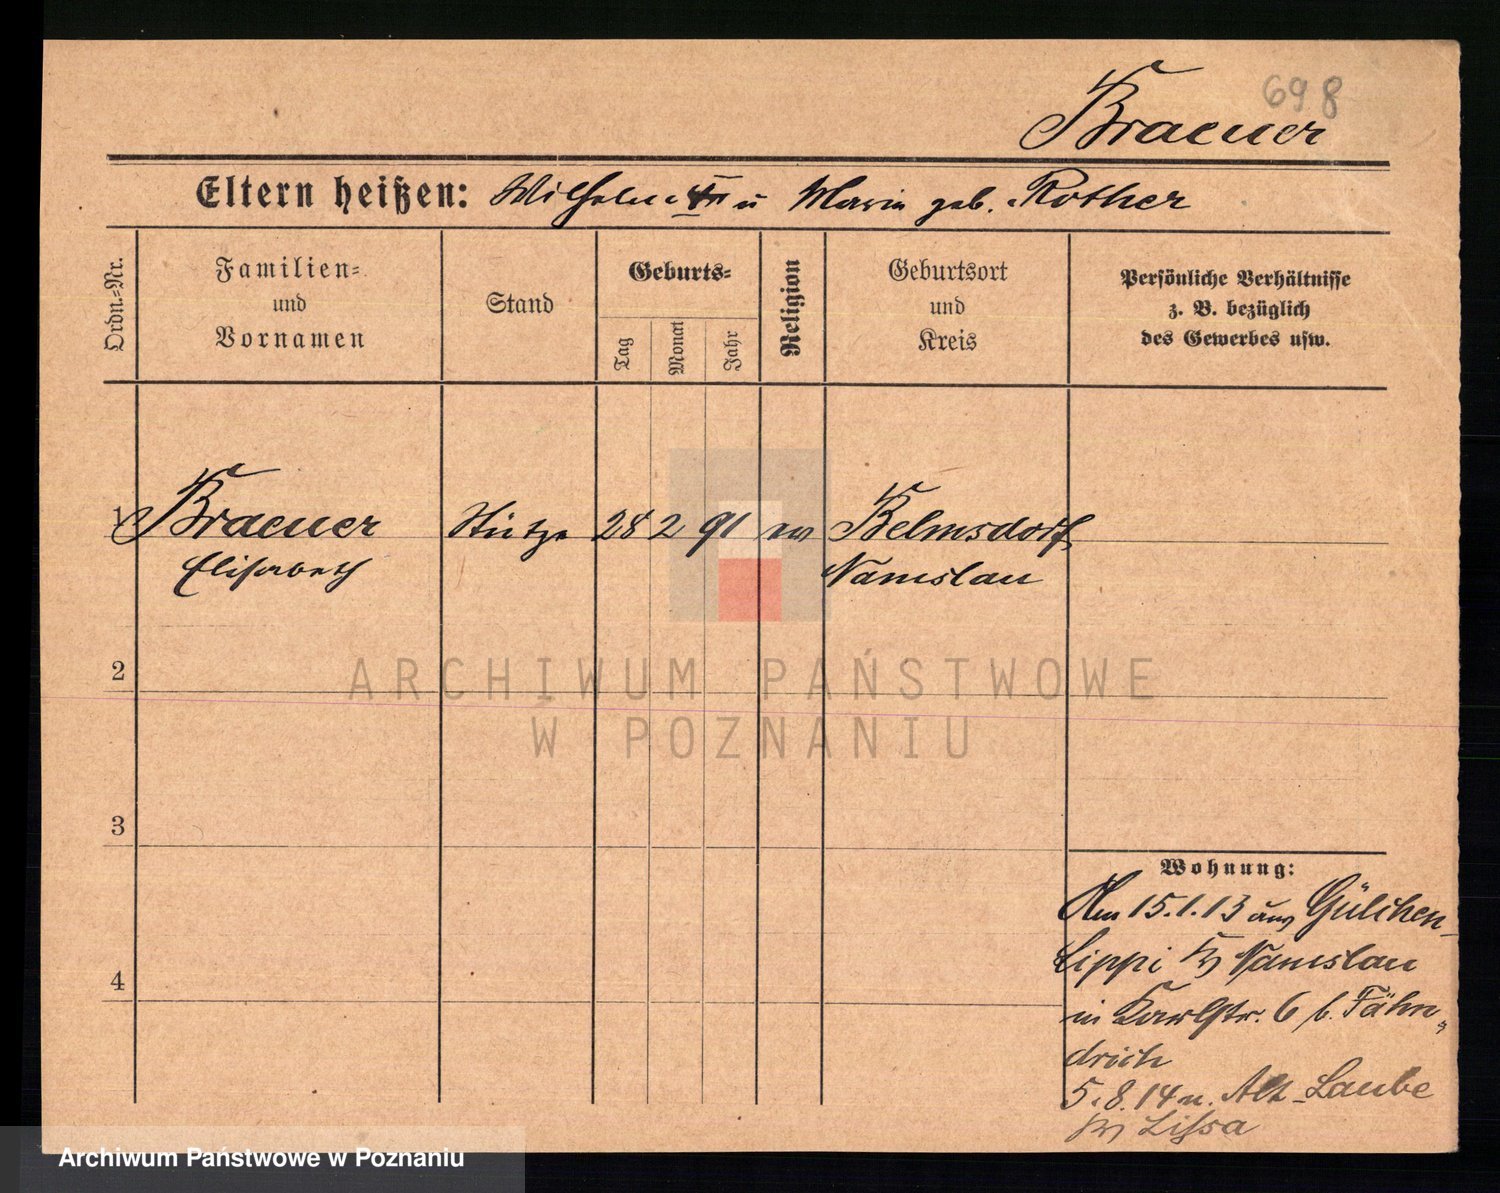 698
Braeuer
Eltern heißen: Wilhelm u Maria geb. Rother
Ordn.-Nr.
Familien-
und
Vornamen
Stand
Geburts-
Tag
Monat
Jahr
Religion
Geburtsort
und
Kreis
Persönliche Verhältnisse
z. B. bezüglich
des Gewerbes usw.
1 Braeuer Stütze 28 2 91 ev Belmsdorf
Elisabeth Namslau
2
3
4
ARCHIWUM PAŃSTWOWE
W POZNANIU
Wohnung:
Am 15.1.13 aus Gülchen-
Lippi Kr Namslau
in Karlstr. 6 b. Fähn-
drich
5.8.14 n. Alt-Laube
Kr Lissa
Archiwum Państwowe w Poznaniu